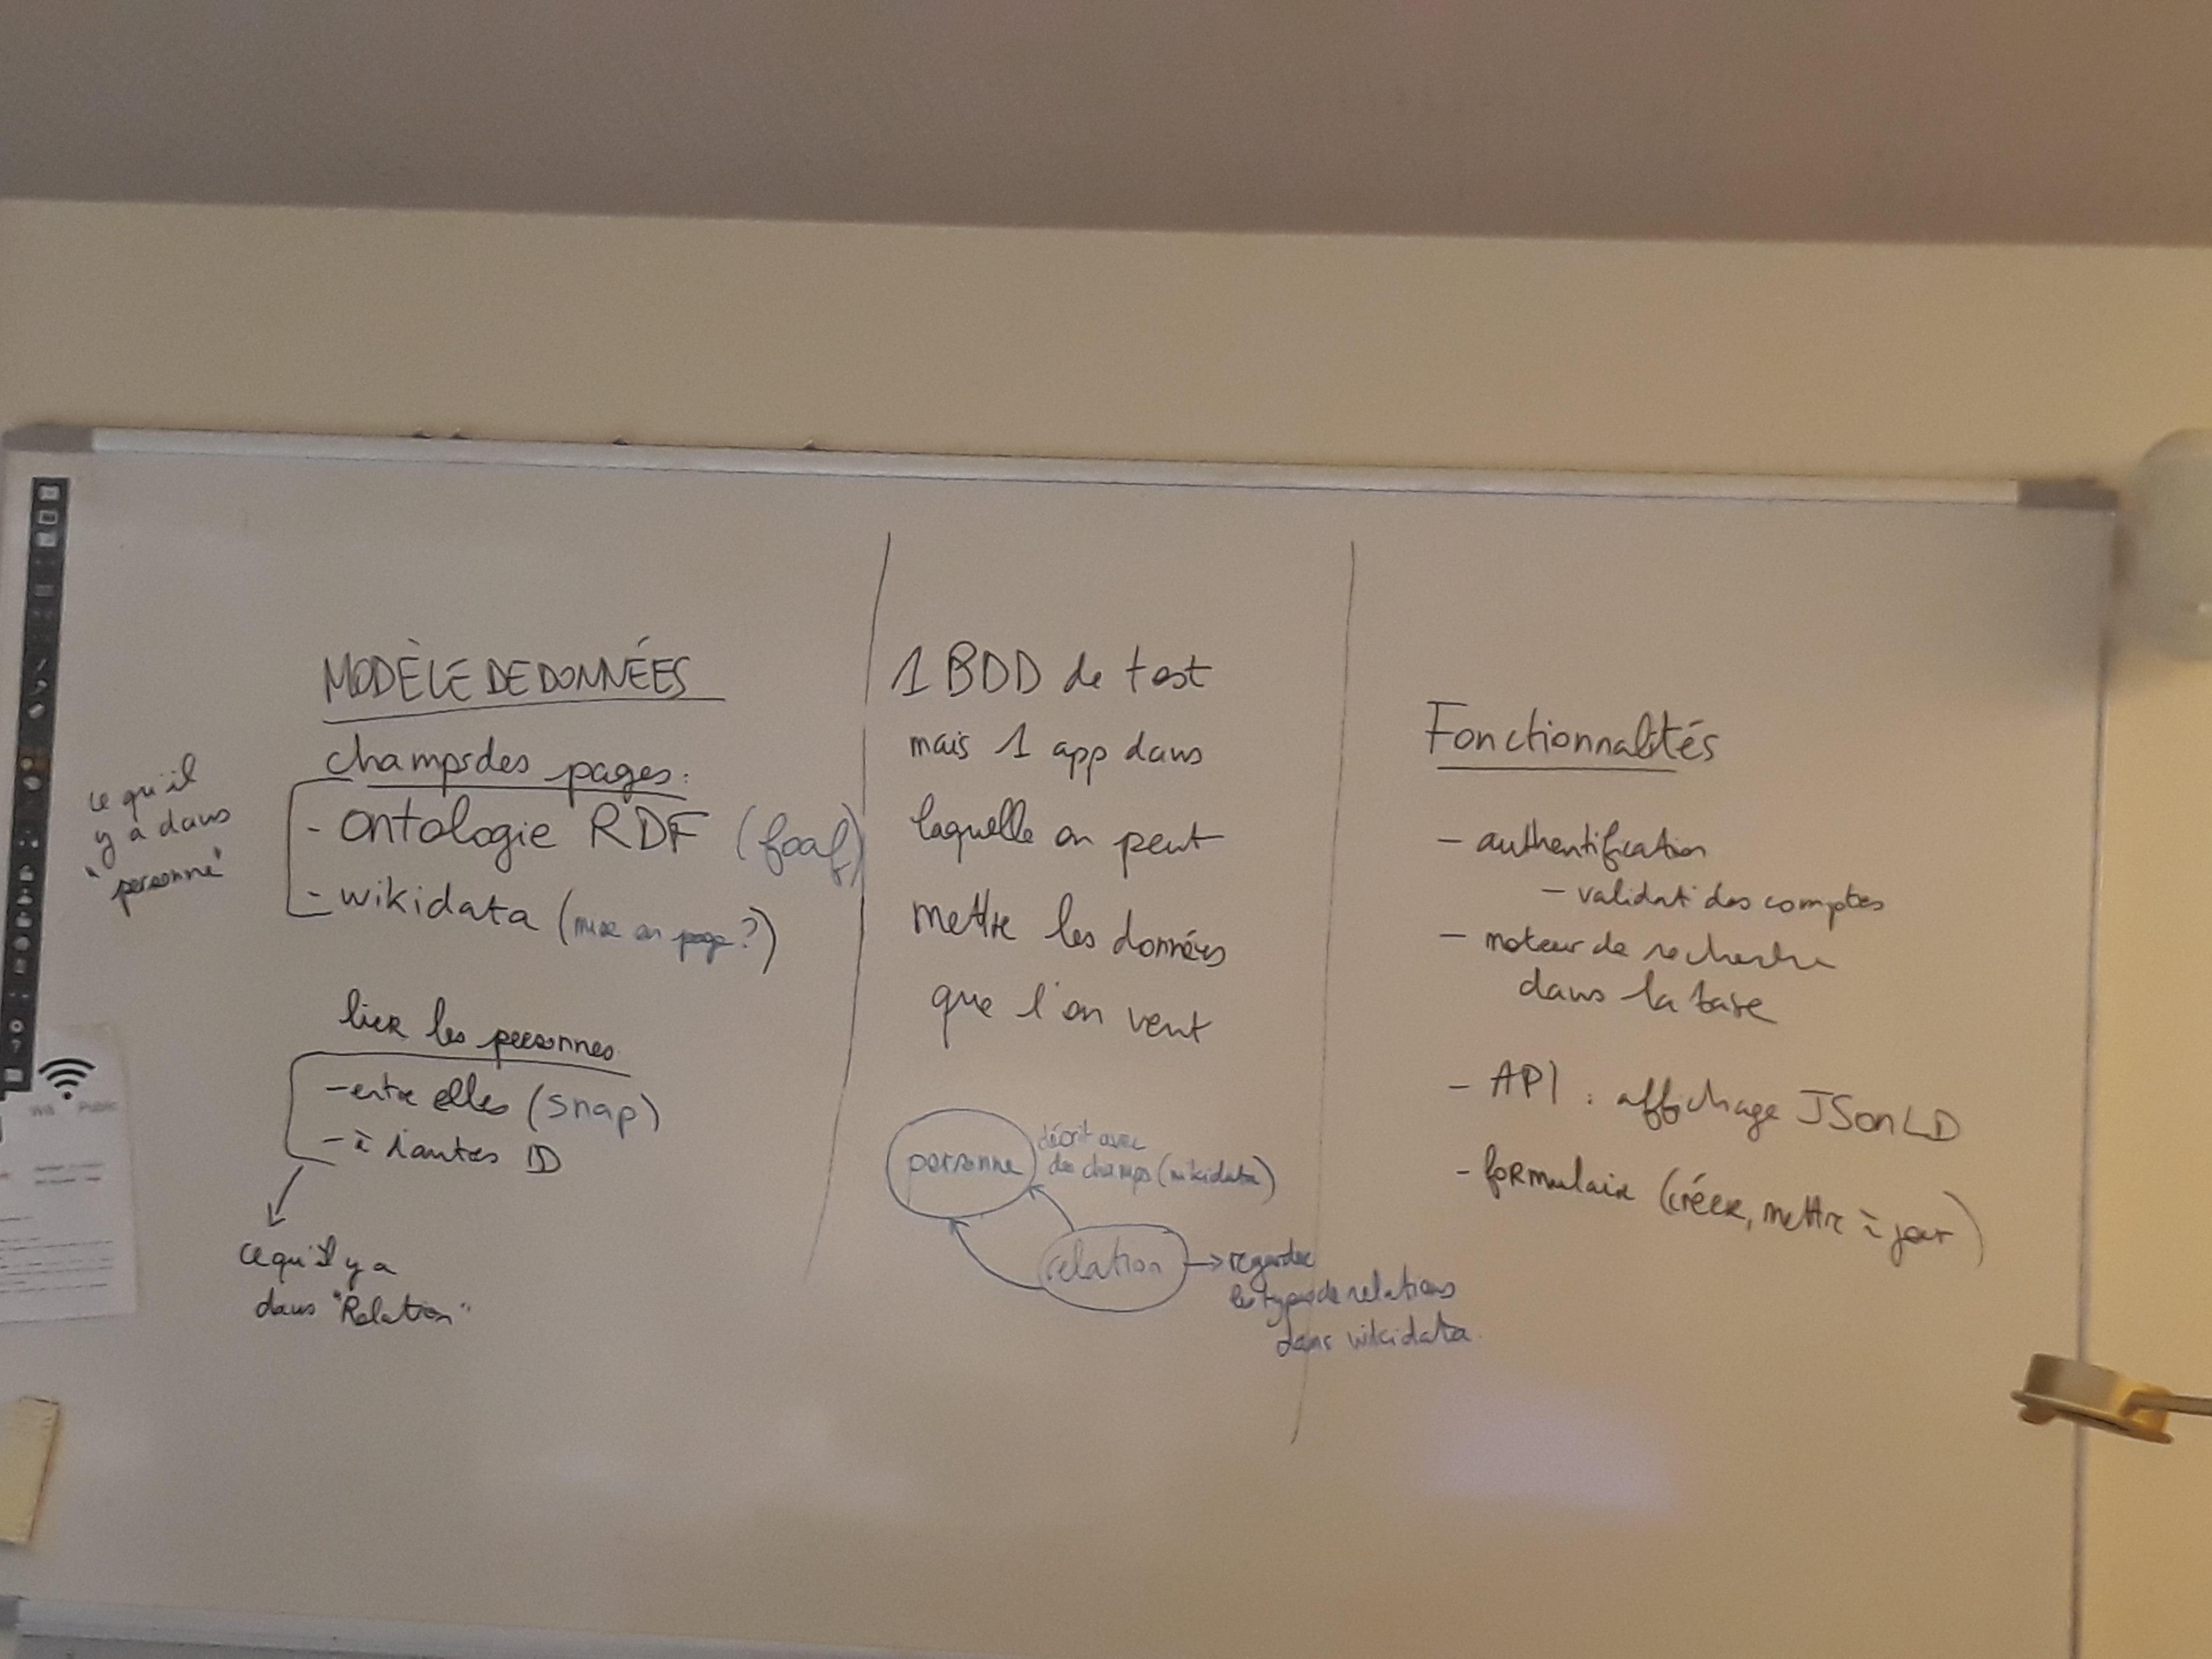 MODÈLE DE DONNÉES
champs des pages:
- ontologie RDF (foaf)
- wikidata (mise en page ?)
ce qu'il
y a dans
"personne"
lier les personnes
- entre elles (snap)
- à d'autres ID
ce qu'il y a
dans "Relation"
1 BDD de test
mais 1 app dans
laquelle on peut
mettre les données
que l'on veut
personne
décrit avec
des champs (wikidata)
relation
regarder
les types de relations
dans wikidata.
Fonctionnalités
- authentification
- validat° des comptes
- moteur de recherche
dans la base
- API : affichage JSonLD
- formulaire (créer, mettre à jour)
Wifi Public